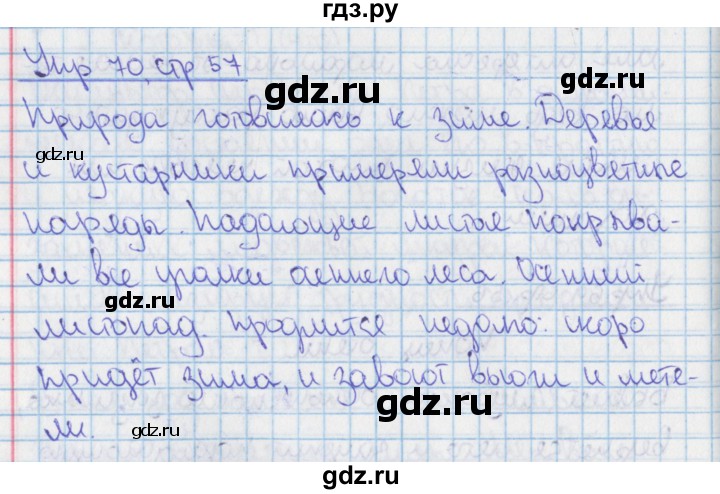 гдз.ру
Упр 70, стр 57
gdz.ru
Природа готовилась к зиме. Деревья
gdz.ru
и кустарники примеряли разноцветные
наряды. Падающие листья покрыва-
gdz.ru
ли все уголки осеннего леса. Осенний
gdz.ru
листопад продлится недолго: скоро
придёт зима, и завоют вьюги и мете-
gdz.ru
ли.
gdz.ru
gdz.ru